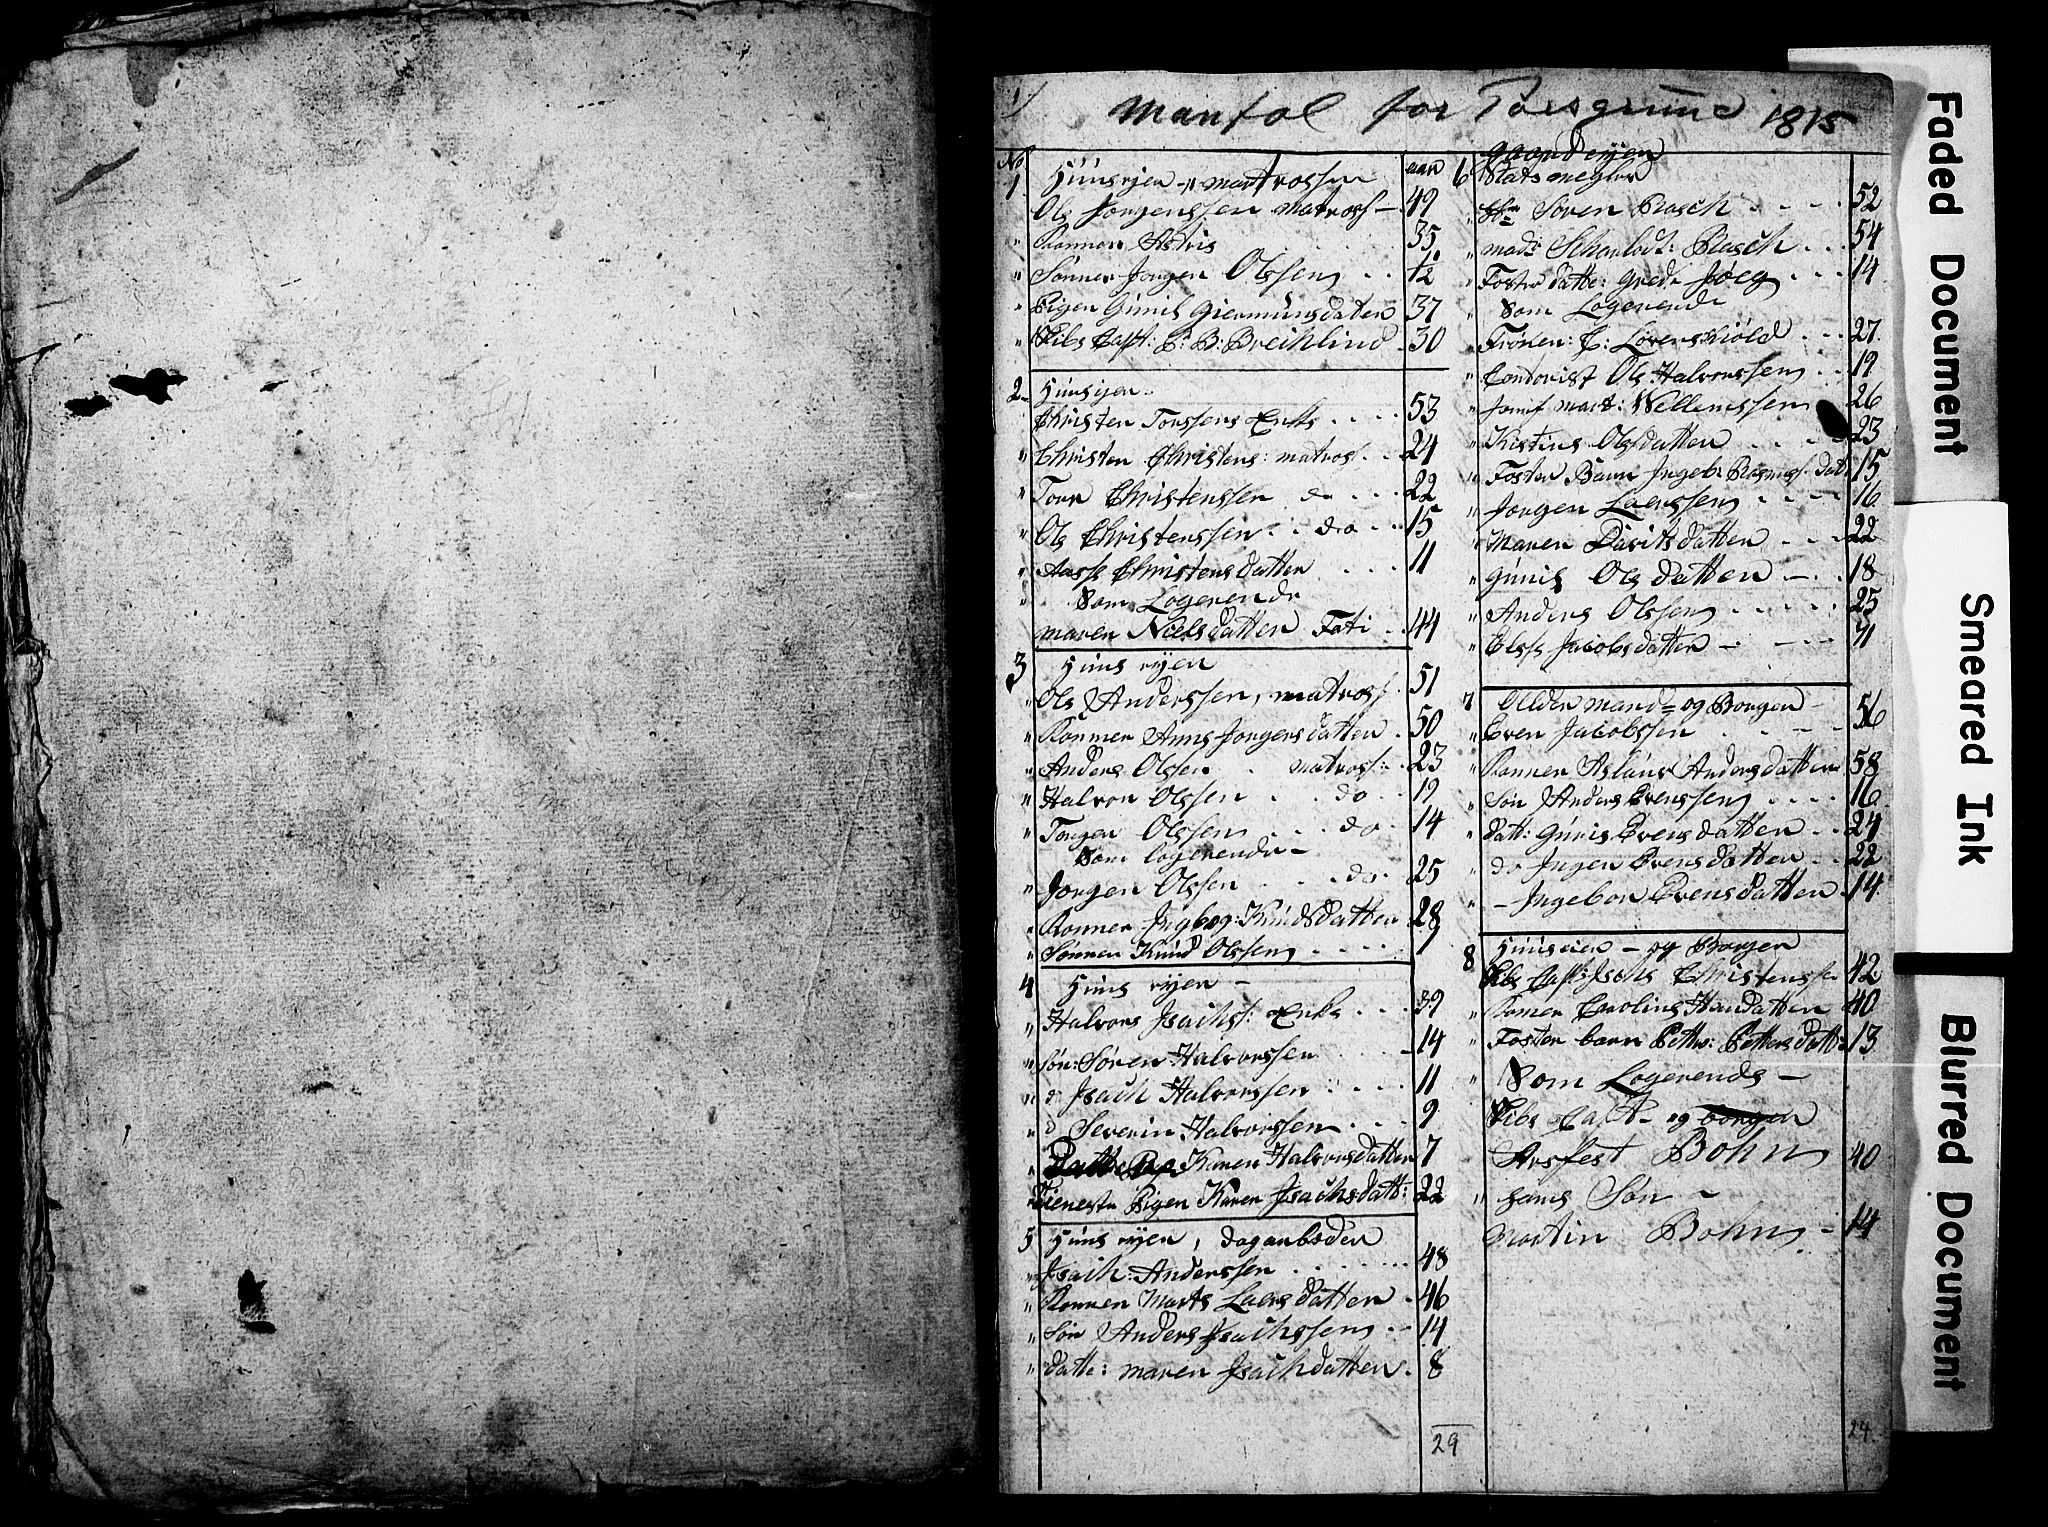 1)
Mantal for Porsgrund 1815
No
aar
1. Huusejer - matrossen
Ole Jørgenssen matross - 49
" Konnen Astris 35
" Sønner Jørgen Olssen . . 1/2
" Pigen Gunil Giermunsdatter 37
" Skibs Capt: C: B: Breihlind . 30
2 - Huusejer.
Christen Torssens Enke . . . . 53
" Christen Christens: matros . . . 24
" Torr Christenssen do . . . 22
" Ole Christenssen . . do . . . 15
" Aasse Christensdatter . . . . 11
" Som Logerende
Maren Nielsdatter Fati . . 44
3 Huus ejer
" Ole Anderssen, matross . 51
" Konner Anne Jørgensdatter . 50
" Anders Olssen . matross: . 23
" Halvor Olssen . . do . 19
" Torgen Olssen . . . do . 14
Som logerende -
" Jørgen Olssen . . . do . 25
" Konner Ingbog: Knudsdatter 28
" Sønnen Knud Olssen . . . . . 1
4 Huus ejer -
" Halvors Isachs: Enke . . . 39
" søn: Søren Halvorssen . . . . 14
" do Isach Halvorssen . . . . . 11
" do Severin Halvorssen . . . . 9
" Karen Halvorsdatter 7
" Tieneste Pigen Karen Isachsdatt: 22
5 Huus ejer, dagarbeder
" Isach: Anderssen . . . . . . . 48
" Konnen Marte Laersdatter . 46
" Søn Anders Isachssen . . . 14
" datte: Maren Isachdatter . 8
29
6 Gaardejer
Statsmegler
" Hr Søren Basch . . . . . 52
" mad: Scharlodt: Basch . . . 54
" Foster datte: Grede Joeg . . . 14
" Som Logerende
" Frøken: C: Lovenskiold . . . 27
" Condorist Ole Halvorssen . . 19
" Jomf mart: Wellemssen 26
" Kistine Olsdatter . . . . 23
" Foster Barn Ingeb: Rasmus: dat: 15
" Jørgen Laerssen . . . . 16
" Maren Davitsdatter . . . 22
" Gunil Olsdatter - . . 18
" Anders Olssen . . . . . 25
" Elsse Jacobsdatter - - - - 71
7 Olderman = og Borger -
" Even Jacobssen . . . . . 56
" Konner Aslaug Andersdatter 58
" Søn Anders Evenssen . . . . 16
" datt: Guris Evensdatter . . 24
" do Ingen Evensdatter . . 22
" - Ingebor Evensdatter . 14
8 Huuseier - og Borger
Skibs Capt: Isach Christenssen 42
" Konner Caroline Hansdatter 40
" Foster barn Petter: Pettersdatt: 13
" Som Logerende -
Skibs Capt - og borger
Arsfest Bohn 40
" hans Søn -
Martin Bohn - 14
24
Faded Document
Smeared Ink
Blurred Document